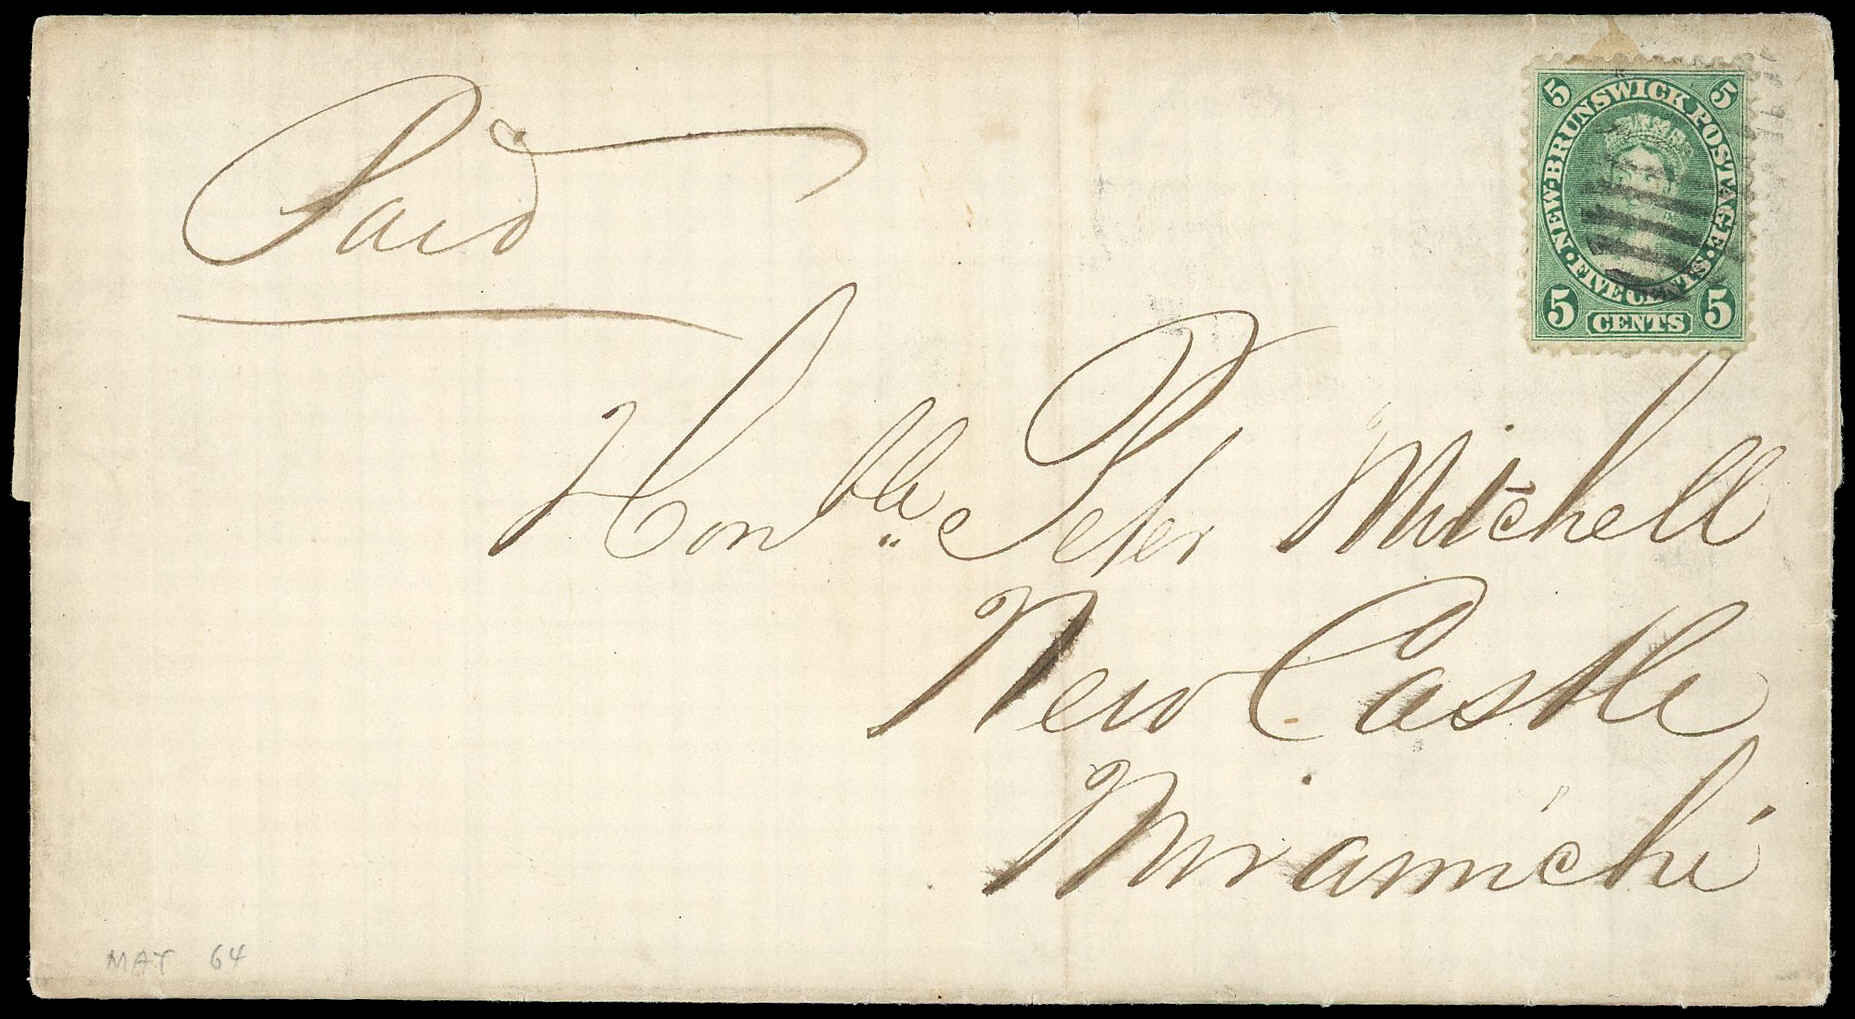 Paid
5 5
NEW·BRUNSWICK POSTAGE·
FIVE CENTS
5 CENTS 5
Honble Peter Mitchell
New Castle
Miramichi
MAY 64